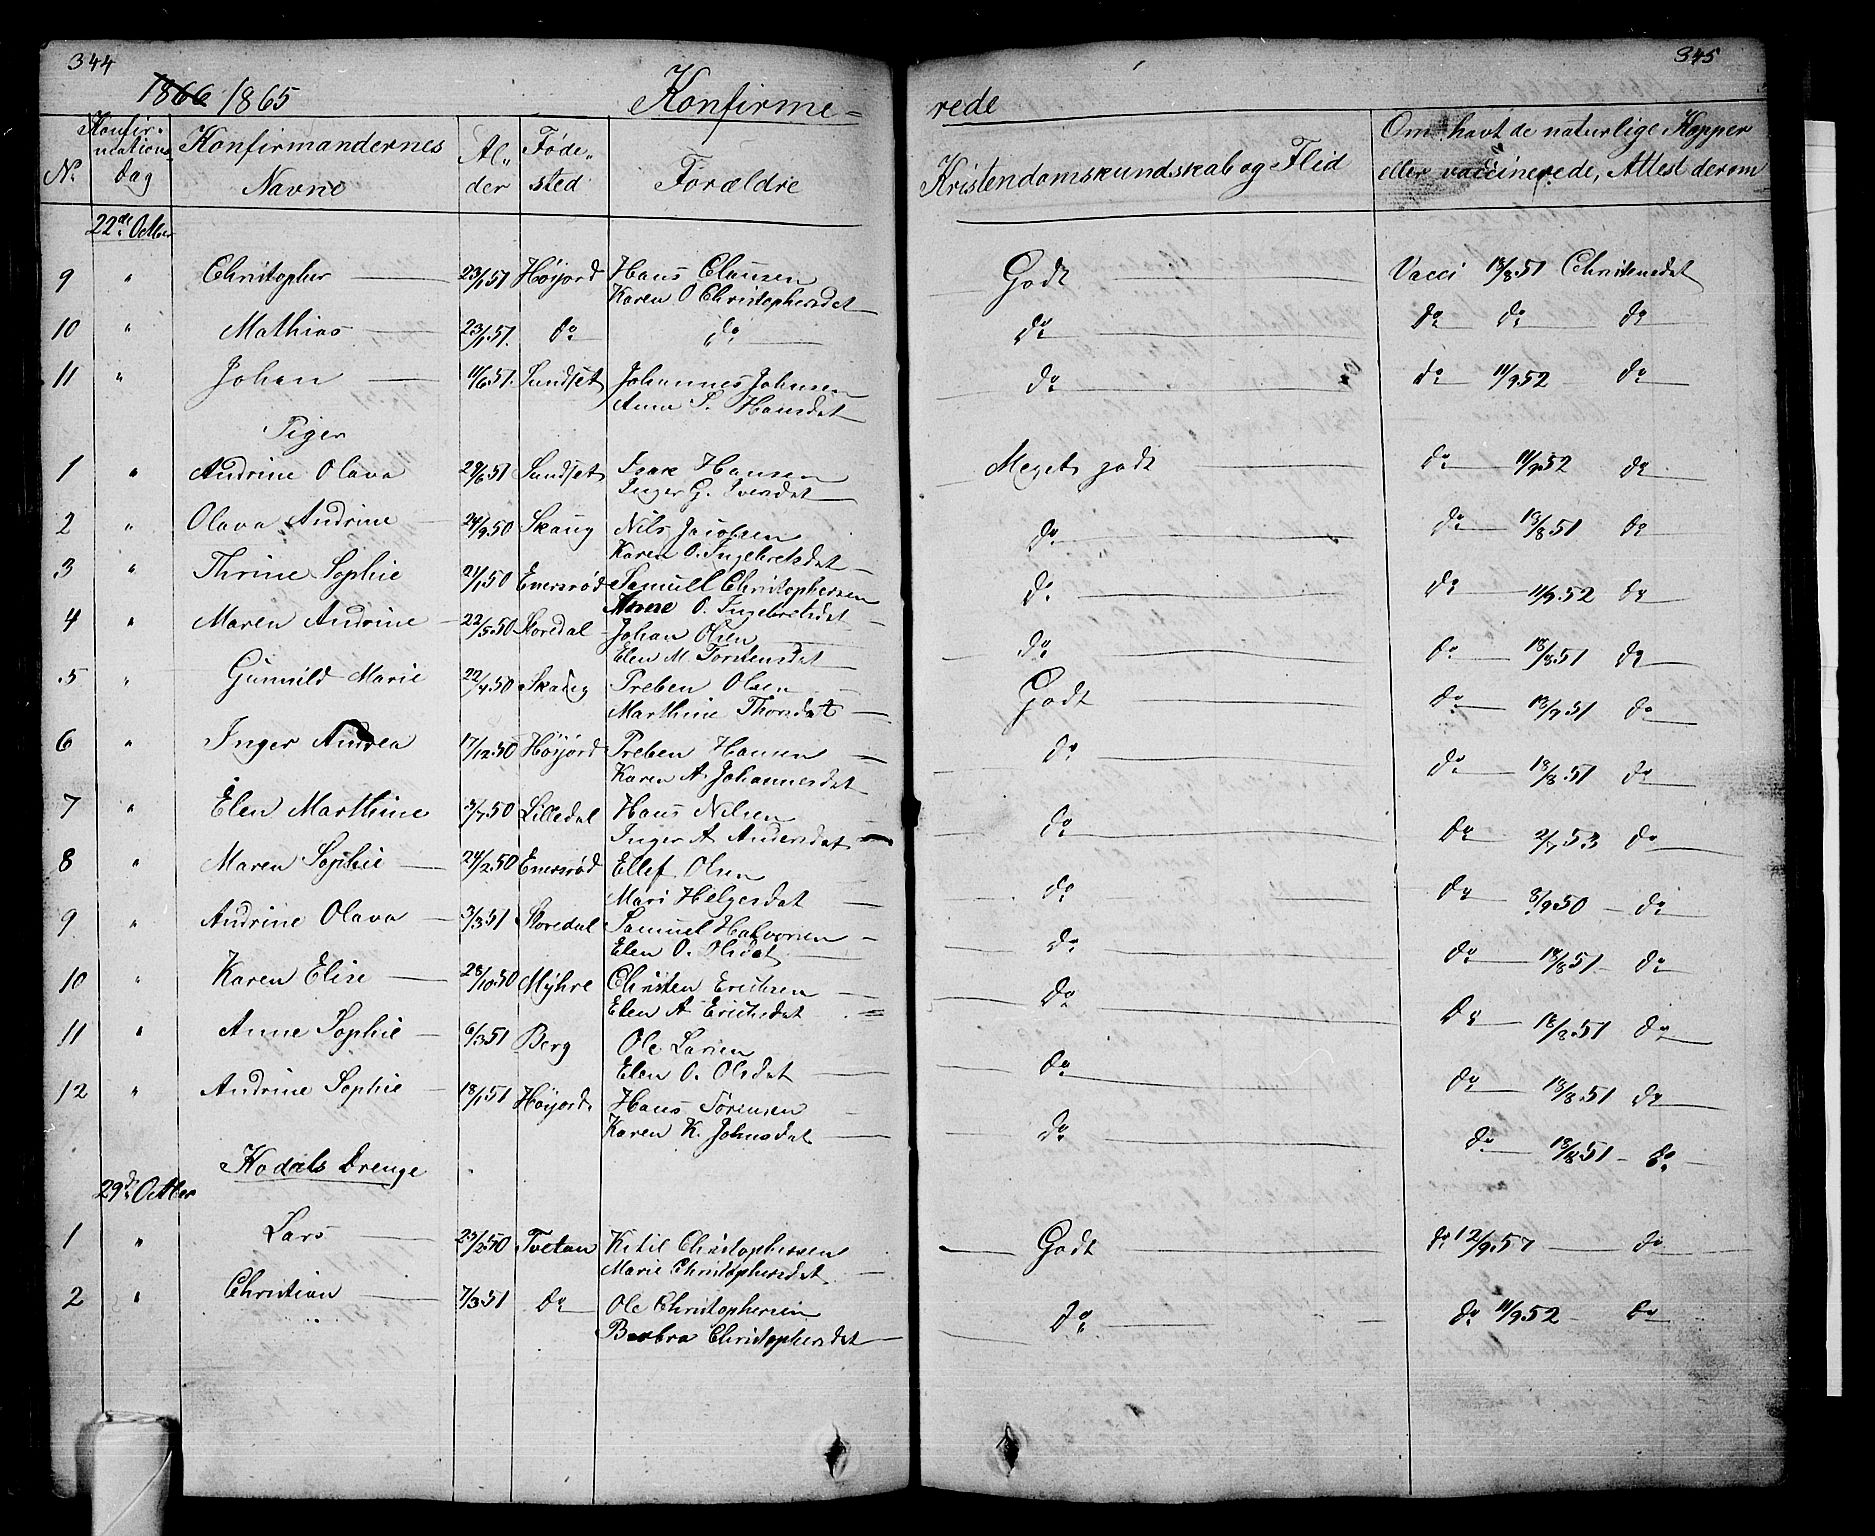 344
1866 1865 Konfirme-
No. Konfir-mations-Dag Konfirmandernes Navne Al-der Føde-sted Forældre
22de Octber
9 " Christopher 23/1 51 Høijord Hans Clausen
Karen O Christophersdat
10 " Mathias 23/1 51. do do
11 " Johan 11/6 51. Sundset Johannes Johnsen
Anne S. Hansdat
Piger
1 " Andrine Olava 29/6 51 Sundset Isak Hansen
Inger G. Iversdat
2 " Olava Andrine 24/9 50 Skaug Nils Jacobsen
Karen O. Ingebretsdat
3 " Thrine Sophie 21/1 50 Enersrød Samuel Christophersen
Anne O. Ingebretsdat
4 " Maren Andrine 22/5 50 Storedal Johan Olsen
Elen M. Torstensdat
5 " Gunnild Marie 22/7 50 Skaug Preben Olsen
Marthine Thorsdat
6 " Inger Andrea 17/12 50 Høijord Preben Hansen
Karen A Johannesdat
7 " Elen Marthine 3/7 50 Lilledal Hans Nilsen
Inger A Andersdat
8 " Maren Sophie 24/2 50 Enersrød Ellef Olsen
Mari Helgesdat
9 " Andrine Olava 3/3 51 Storedal Samuel Halvorsen
Elen O. Olsdat
10 " Karen Elise 28/10 50 Myhre Christen Erichsen
Elen A Erichsdat
11 " Anne Sophie 6/3 51 Berg Ole Larsen
Elen O. Olsdat
12 " Andrine Sophie 18/1 51 Høijord Hans Sørensen
Karen K. Johnsdat
Kodals Drenge
29de Octber
1 " Lars 23/2 50 Tvetan Ketil Christophersen
Marie Christophersdat
2 " Christian 7/3 51 do Ole Christophersen
Barbra Christophersdat
345
rede
Kristendomskundskab og Flid Om havt de naturlige Kopper
eller vaccinerede, Attest derom
Godt Vacci 18/8 51 Christensdat
do do do do
do do 11/9 52 do
Meget godt do 11/9 52 do
do do 18/8 51 do
do do 11/9 52 do
do do 18/8 51 do
Godt do 18/9 51 do
do do 18/8 51 do
do do 2/7 53 do
do do 8/9 50 do
do do 18/8 51 do
do do 18/8 51 do
do do 18/8 51 do
do do 18/8 51 do
Godt do 12/9 57 do
do do 11/9 52 do